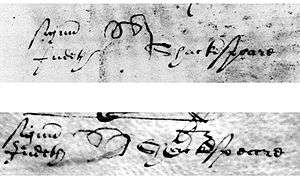 Signum
Judeth Shackspeare
Signum
Judeth Shackspeare